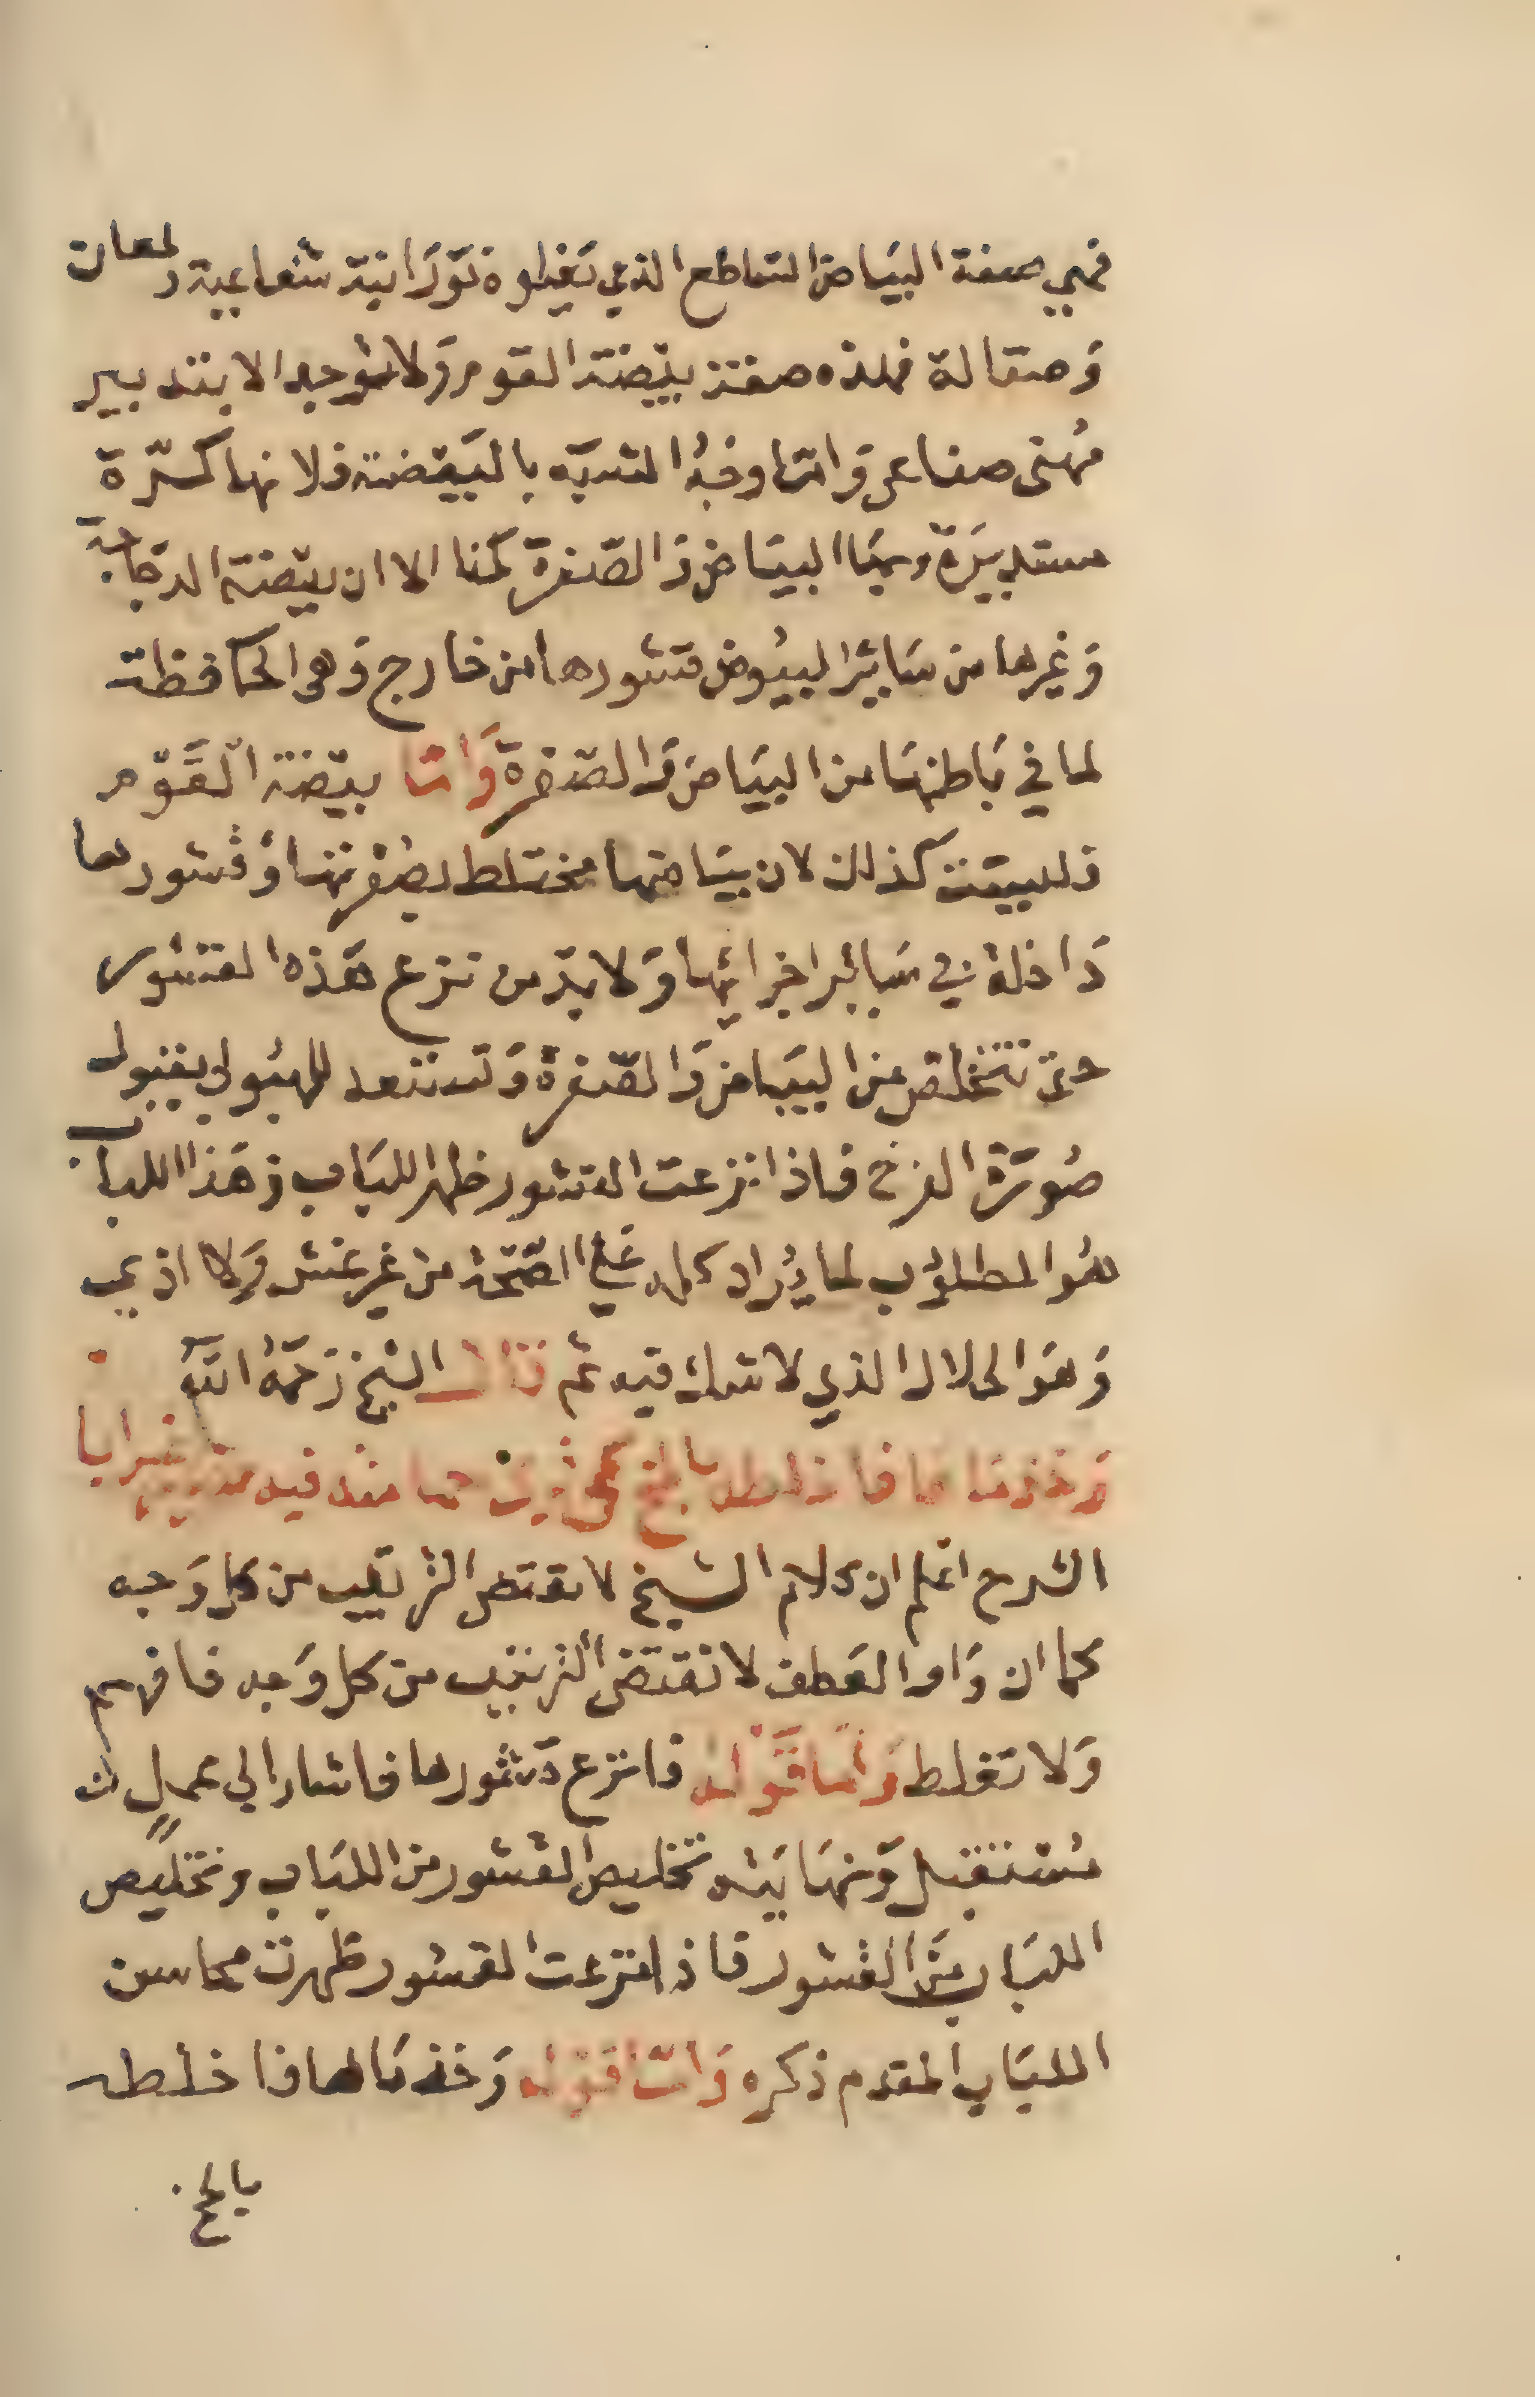 فهي صفة البياض الساطع الذي تغلوه نورانية شعاعية ولمعان
وصقالة فهذه صفة بيضة القوم ولا توجد الا بتدبير
مهني صناعي واما وجه التشبه بالبيضة فلانها كسرة
مستديرة وبها البياض والصفرة كهنا الا ان بيضة الدجاجة
وغيرها من سائر البيوض قشورها من خارج وهي الحافظة
لما في باطنها من البياض والصفرة واما بيضة القوم
فليست كذلك لان بياضها مختلط بصفرتها وقشورها
داخلة في سائر اجزائها ولا بد من نزع هذه القشور
حتى تتخلص من البياض والصفرة وتستعد للهيولي بقبول
صورة الفرخ فاذا نزعت القشور ظهر اللباب وهذا اللباب
هو المطلوب لما يراد كله على الصحة من غير غش ولا اذي
وهو الحلال الذي لا شك فيه ثم قال الشيخ رحمه الله
وخذ مالها فاخلطه بالخ فيه
الشرح اعلم ان كلام الشيخ لا يقتض الترتيب من كل وجه
كما ان واو العطف لا تقتضي الترتيب من كل وجه فافهم
ولا تغلط واما قوله فانزع قشورها فاشار الى عمل ان
مستقبل ونهايته تخليص القشور من اللباب وتخليص
اللباب من القشور فاذا نتزعت القشور ظهرت محاسن
اللباب المقدم ذكره واما قوله وخذ مالها فاخلطه
بالخ